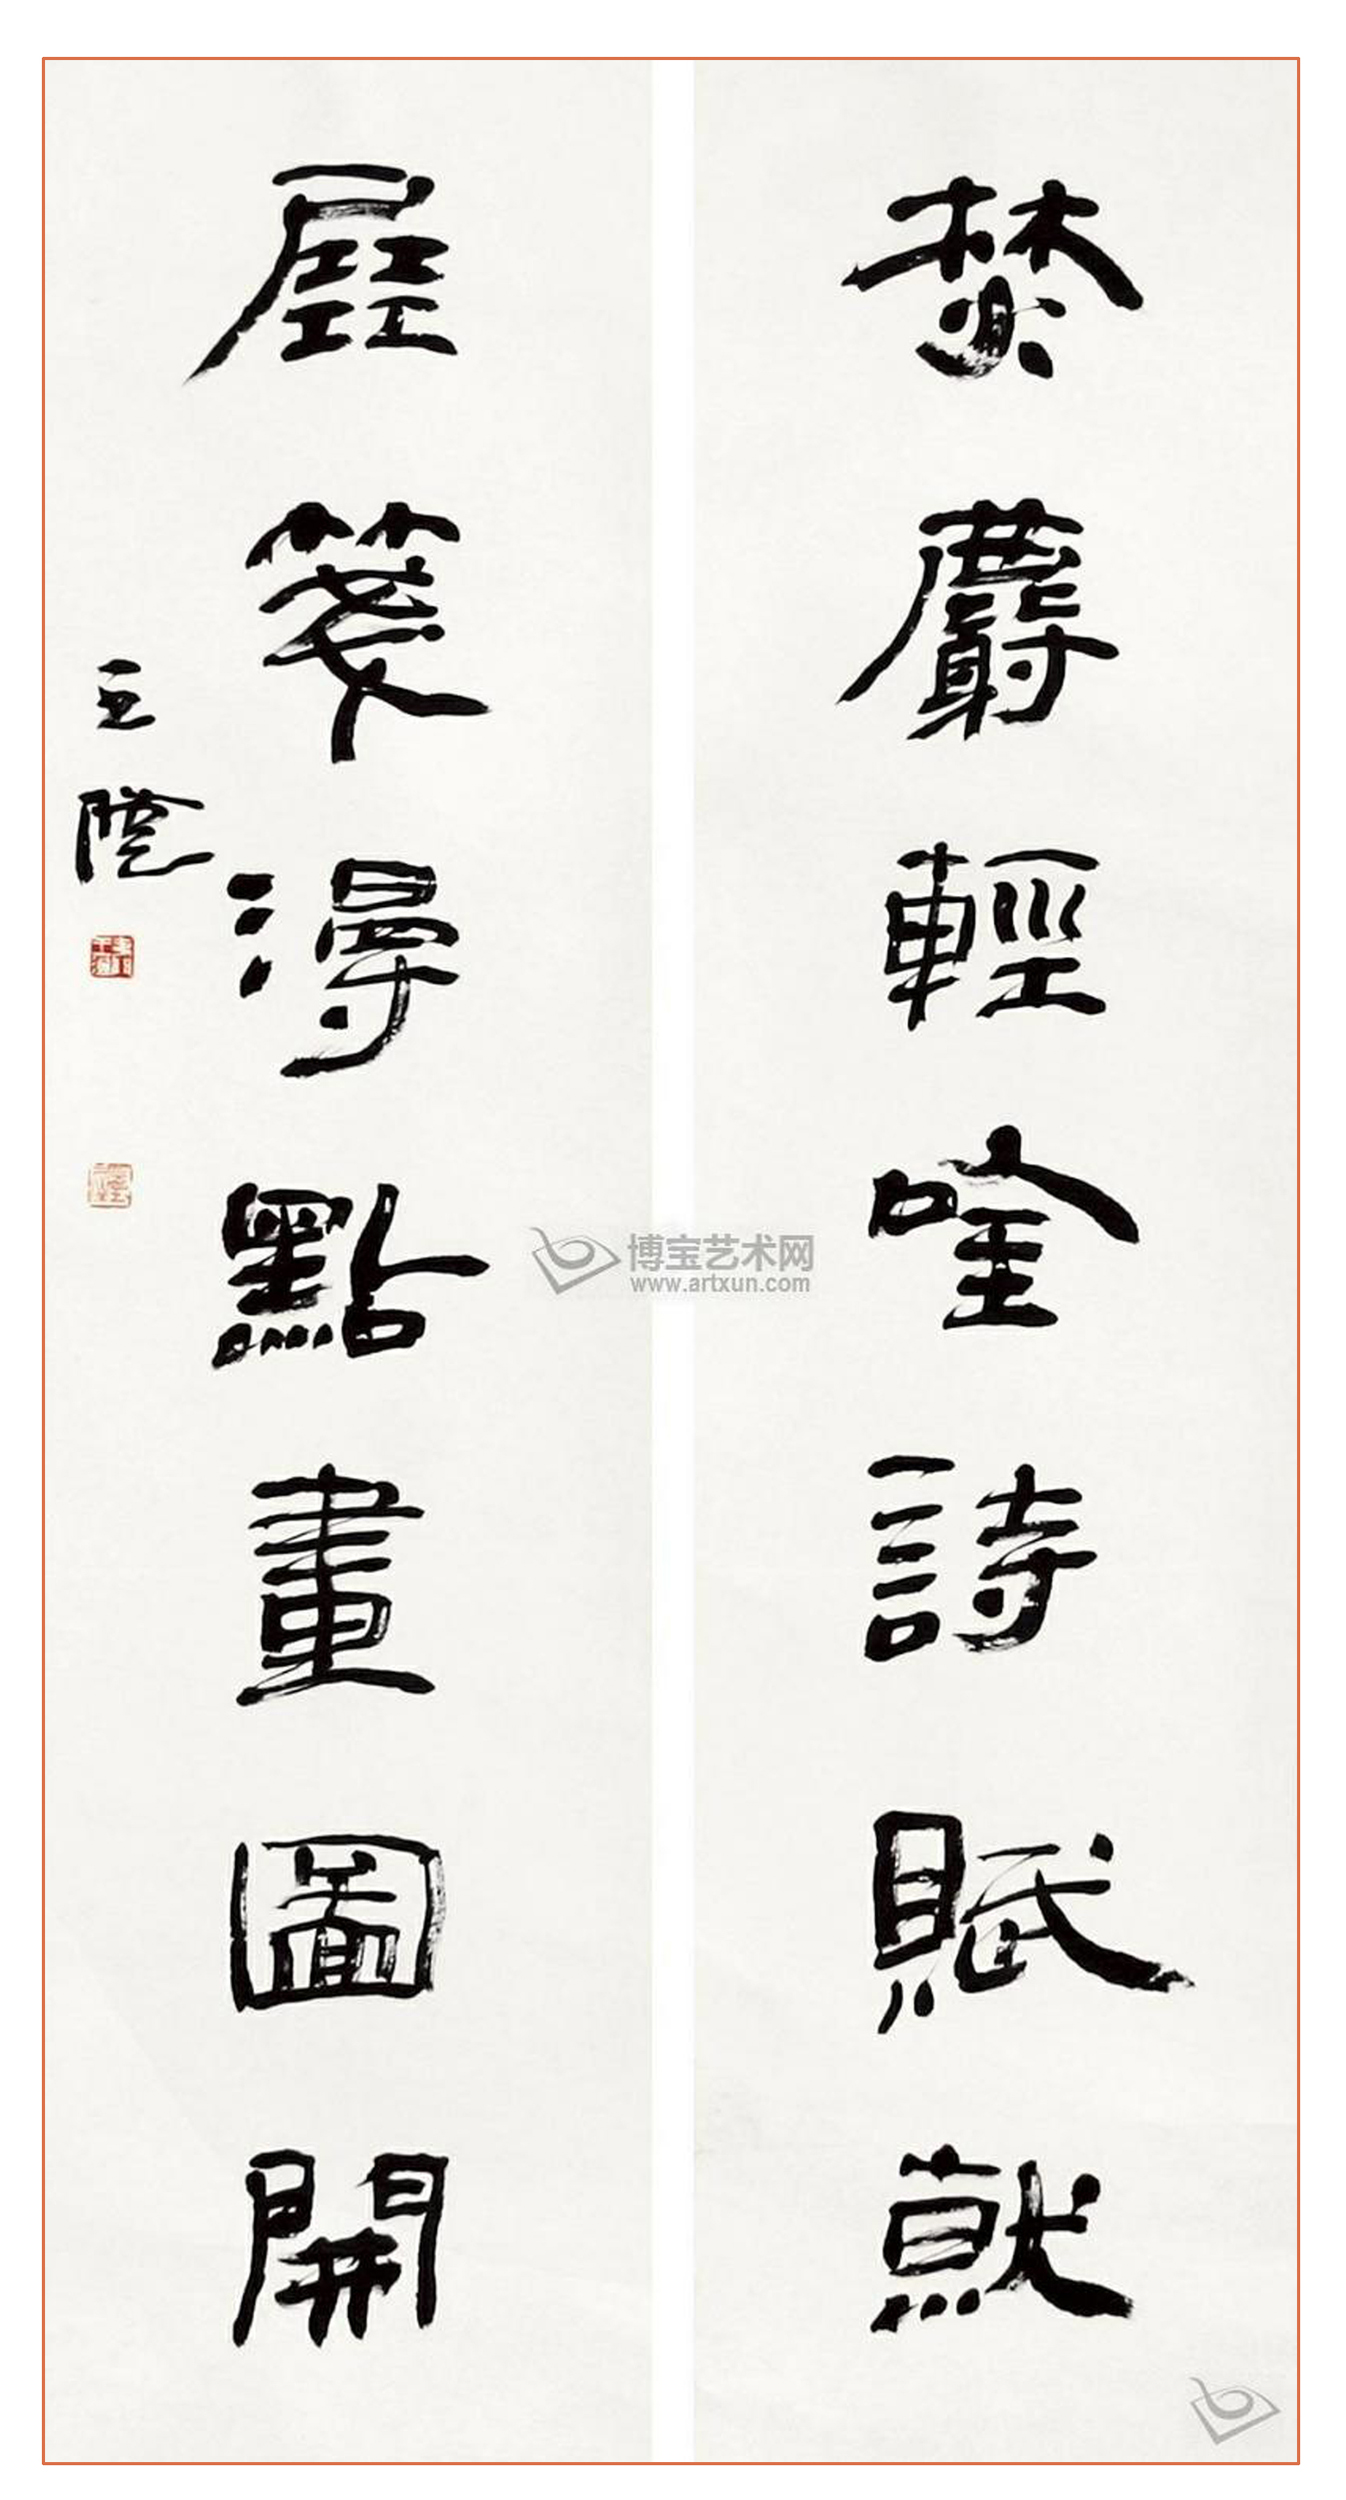 焚麝輕唫詩賦就
展箋漫點畫圖開
王
博宝艺术网
www.artxun.com